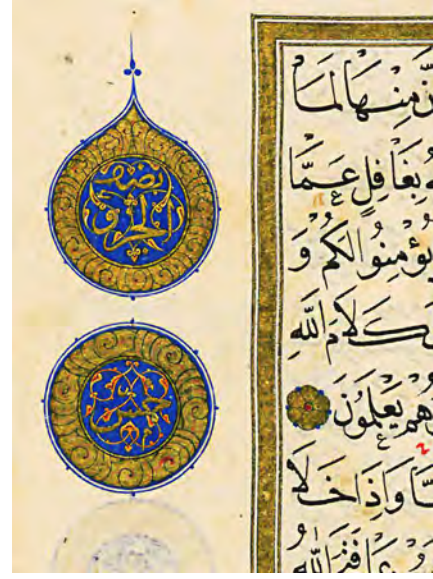 نصف
الجزو
خمس
نَّ مِنْهَا لَمَا
هُ بِغَافِلٍ عَمَّا
يُؤْمِنُوا لَكُمْ وَ
كَلَامَ اللَّهِ
وَهُمْ يَعْلَمُونَ
وَإِذَا خَلَا
اللَّهُ